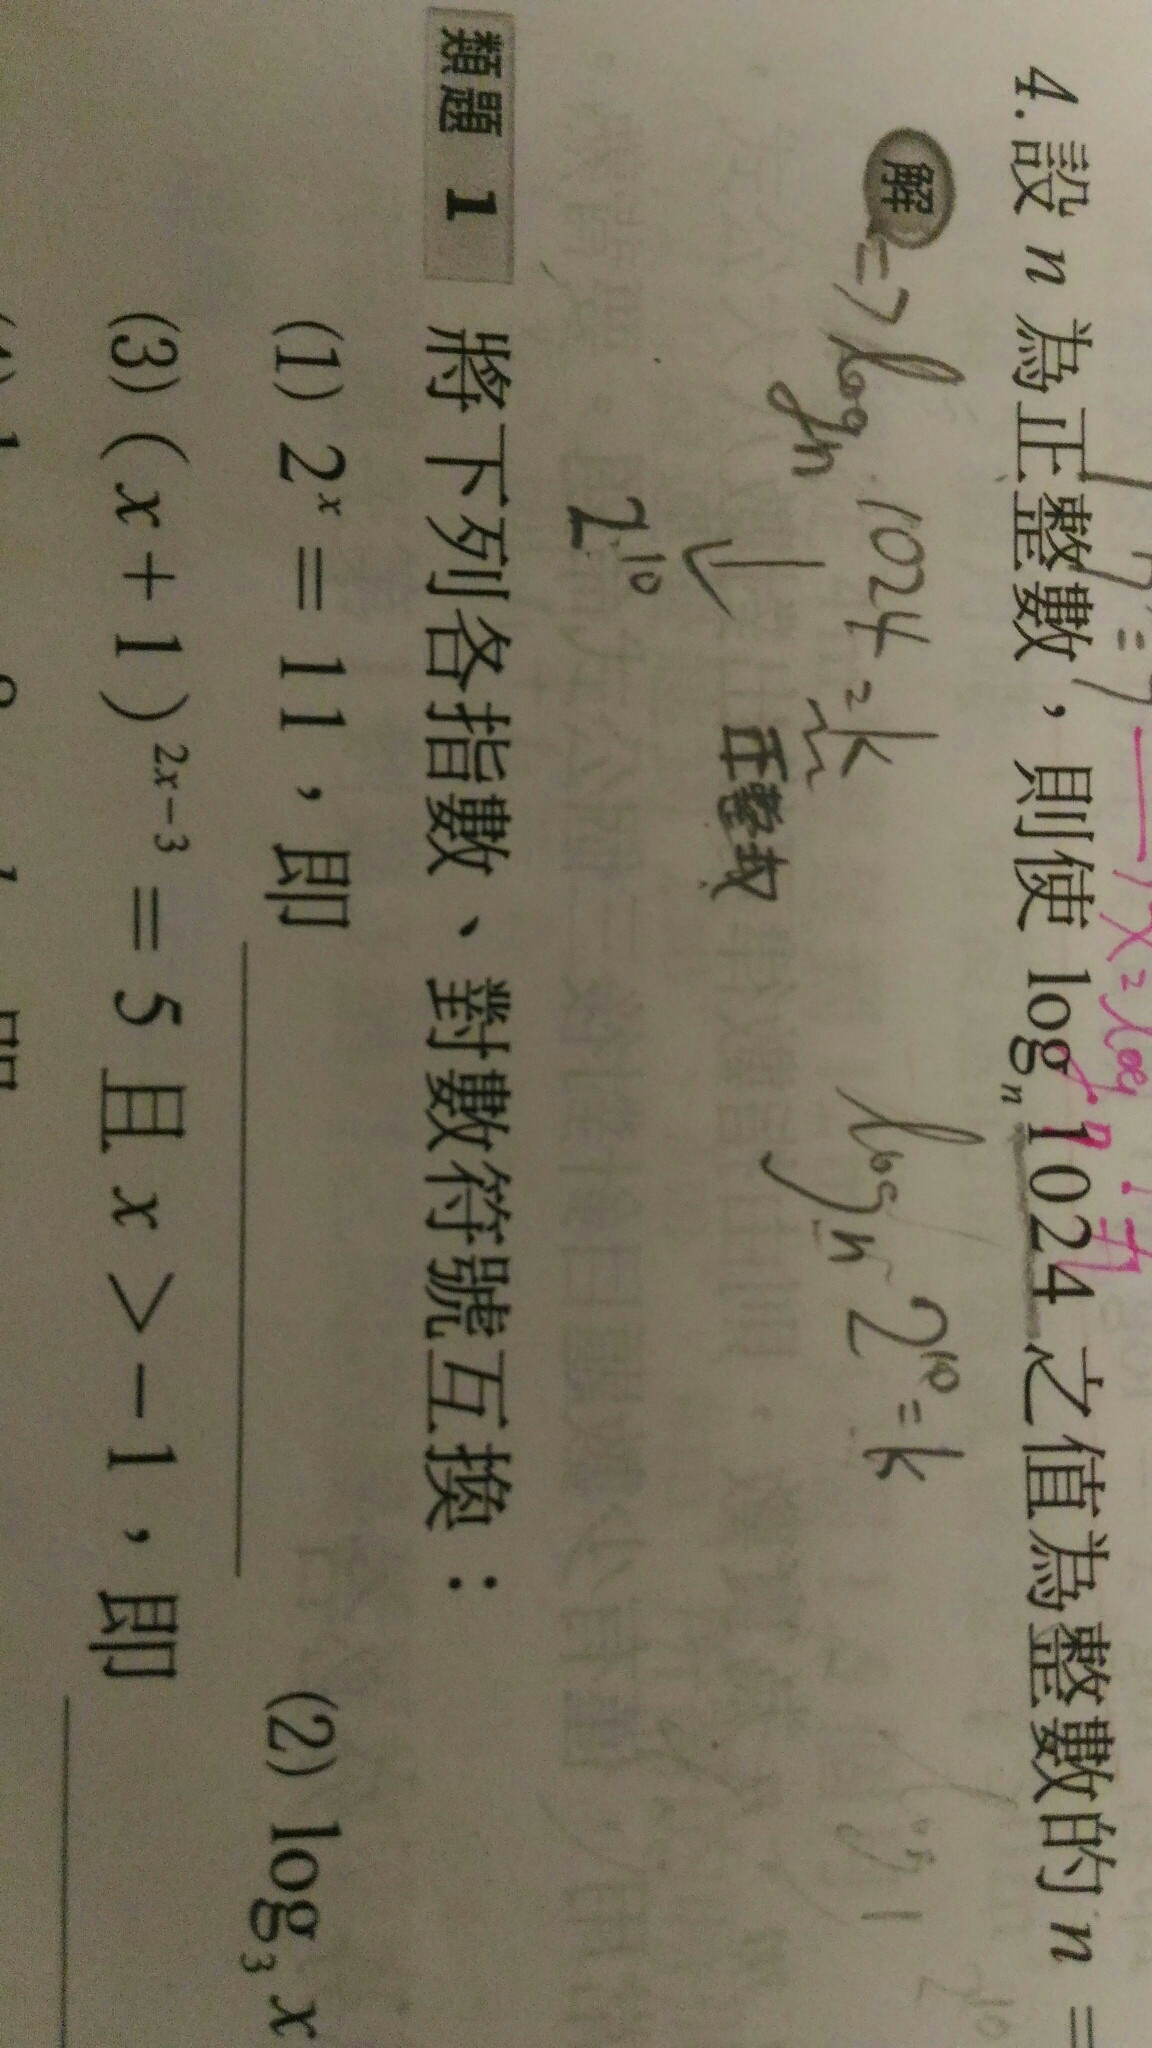 4. 設 n 為正整數，則使 logₙ 1024 之值為整數的 n =
解 => logₙ 1024 = k
正整数
2¹⁰
logₙ 2¹⁰ = k
類題 1 將下列各指數、對數符號互換：
(1) 2ˣ = 11，即 (2) log₃ x
(3) ( x + 1 )²ˣ⁻³ = 5 且 x > − 1，即